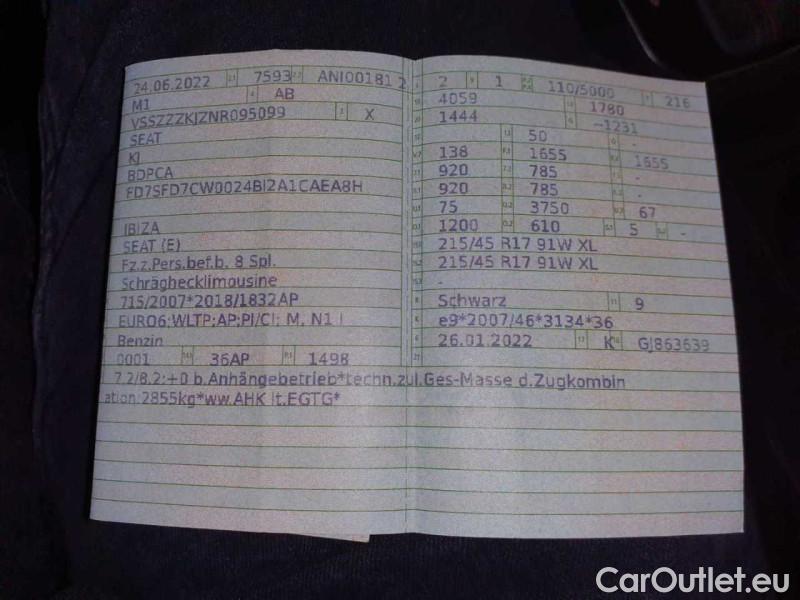 24.06.2022 2.1 7593 2.2 ANI00181 2
M1 4 AB
VSSZZZKJZNR095099 3 X
SEAT
KJ
BDPCA
FD7SFD7CW0024BI2A1CAEA8H
IBIZA
SEAT (E)
Fz.z.Pers.bef.b. 8 Spl.
Schräghecklimousine
715/2007*2018/1832AP
EURO6;WLTP;AP;PI/CI; M, N1 I
Benzin
0001 36AP 1498
7.2/8.2:+0 b.Anhängebetrieb*techn.zul.Ges-Masse d.Zugkombin
ation:2855kg*ww.AHK lt.EGTG*
2 9 1 110/5000 T 216
4059 1780
1444 G --1231
50 -
138 1655 1655
920 785 -
920 785 -
75 3750 67
1200 610 5 -
215/45 R17 91W XL
215/45 R17 91W XL
-
Schwarz 11 9
e9*2007/46*3134*36
26.01.2022 17 K 16 GJ863639
CarOutlet.eu